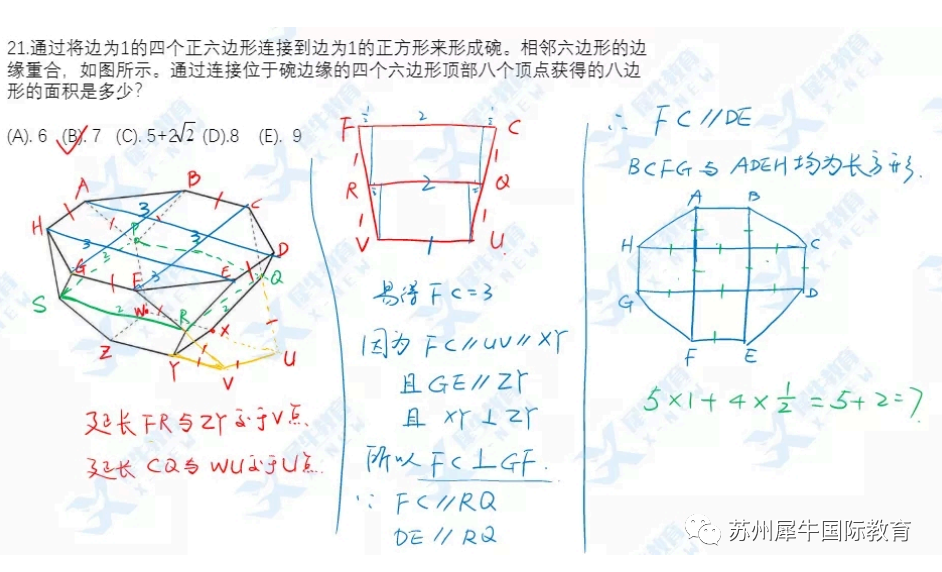 21.通过将边为1的四个正六边形连接到边为1的正方形来形成碗。相邻六边形的边
缘重合，如图所示。通过连接位于碗边缘的四个六边形顶部八个顶点获得的八边
形的面积是多少?
(A). 6 (B). 7 (C). 5+2√2 (D).8 (E). 9
A
B
H
C
3
3
3
3
G
F
E
D
Q
S
2
2
2
R
W
X
Z
Y
V
U
延长FR与ZY交于V点.
延长CQ与WU交于U点.
F
1/2
2
1/2
C
1
1
R
2
Q
1
1
V
1
U
易得FC=3
因为 FC//UV//XY
且GE//ZY
且 XY⊥ZY
所以 FC⊥GF.
∵ FC//RQ
DE//RQ
∴ FC//DE
BCFG与ADEH均为长方形.
A
B
H
C
G
D
F
E
5×1+4×1/2=5+2=7
苏州犀牛国际教育
犀牛教育
X-NEW